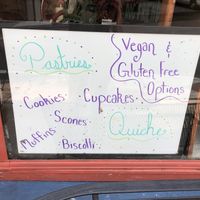 Pastries
Vegan &
Gluten Free
Options
Cookies.
Cupcakes.
Scones.
Quiche
Muffins
Biscotti